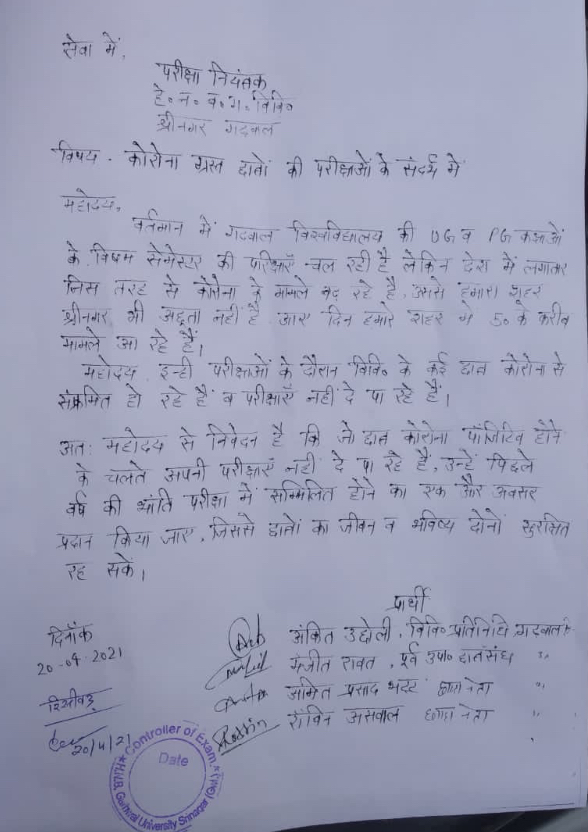 सेवा में,
परीक्षा नियंत्रक
हे॰ न॰ ब॰ ग॰ विवि॰
श्रीनगर गढवाल
विषय - कोरोना ग्रस्त छात्रों की परीक्षाओं के संदर्भ में
महोदय,
वर्तमान में गढवाल विश्वविद्यालय की UG व PG कक्षाओं
के विषम सेमेस्टर की परीक्षाएँ चल रही है लेकिन देश में लगातार
जिस तरह से कोरोना के मामले बढ रहे है, उससे हमारा शहर
श्रीनगर भी अछूता नहीं है आए दिन हमारे शहर मे 50 के करीब
मामले आ रहे हैं।
महोदय इन्ही परीक्षाओं के दौरान विवि॰ के कई छात्र कोरोना से
संक्रमित हो रहे हैं व परीक्षाएँ नहीं दे पा रहे हैं।
अतः महोदय से निवेदन है कि जो छात्र कोरोना पॉजिटिव होने
के चलते अपनी परीक्षाएँ नहीं दे पा रहे है, उन्हें पिछले
वर्ष की भांति परीक्षा में सम्मिलित होने का एक और अवसर
प्रदान किया जाए, जिससे छात्रों का जीवन व भविष्य दोनों सुरक्षित
रह सके।
प्रार्थी
दिनाँक
20-04-2021
अंकित उछोली, विवि॰ प्रतिनिधि गढवाल वि
रंजीत रावत, पूर्व उपा॰ छात्रसंघ "
अमित प्रसाद भट्ट छात्र नेता "
रॉबिन असवाल छात्र नेता "
रिसीवड्
20/4/21
Controller of Exam.
Date
H.N.B. Garhwal University Srinagar (Gwl)